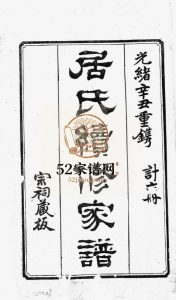 光緒辛丑重鐫
計六册
居氏續修家譜
宗祠藏板
52家谱网